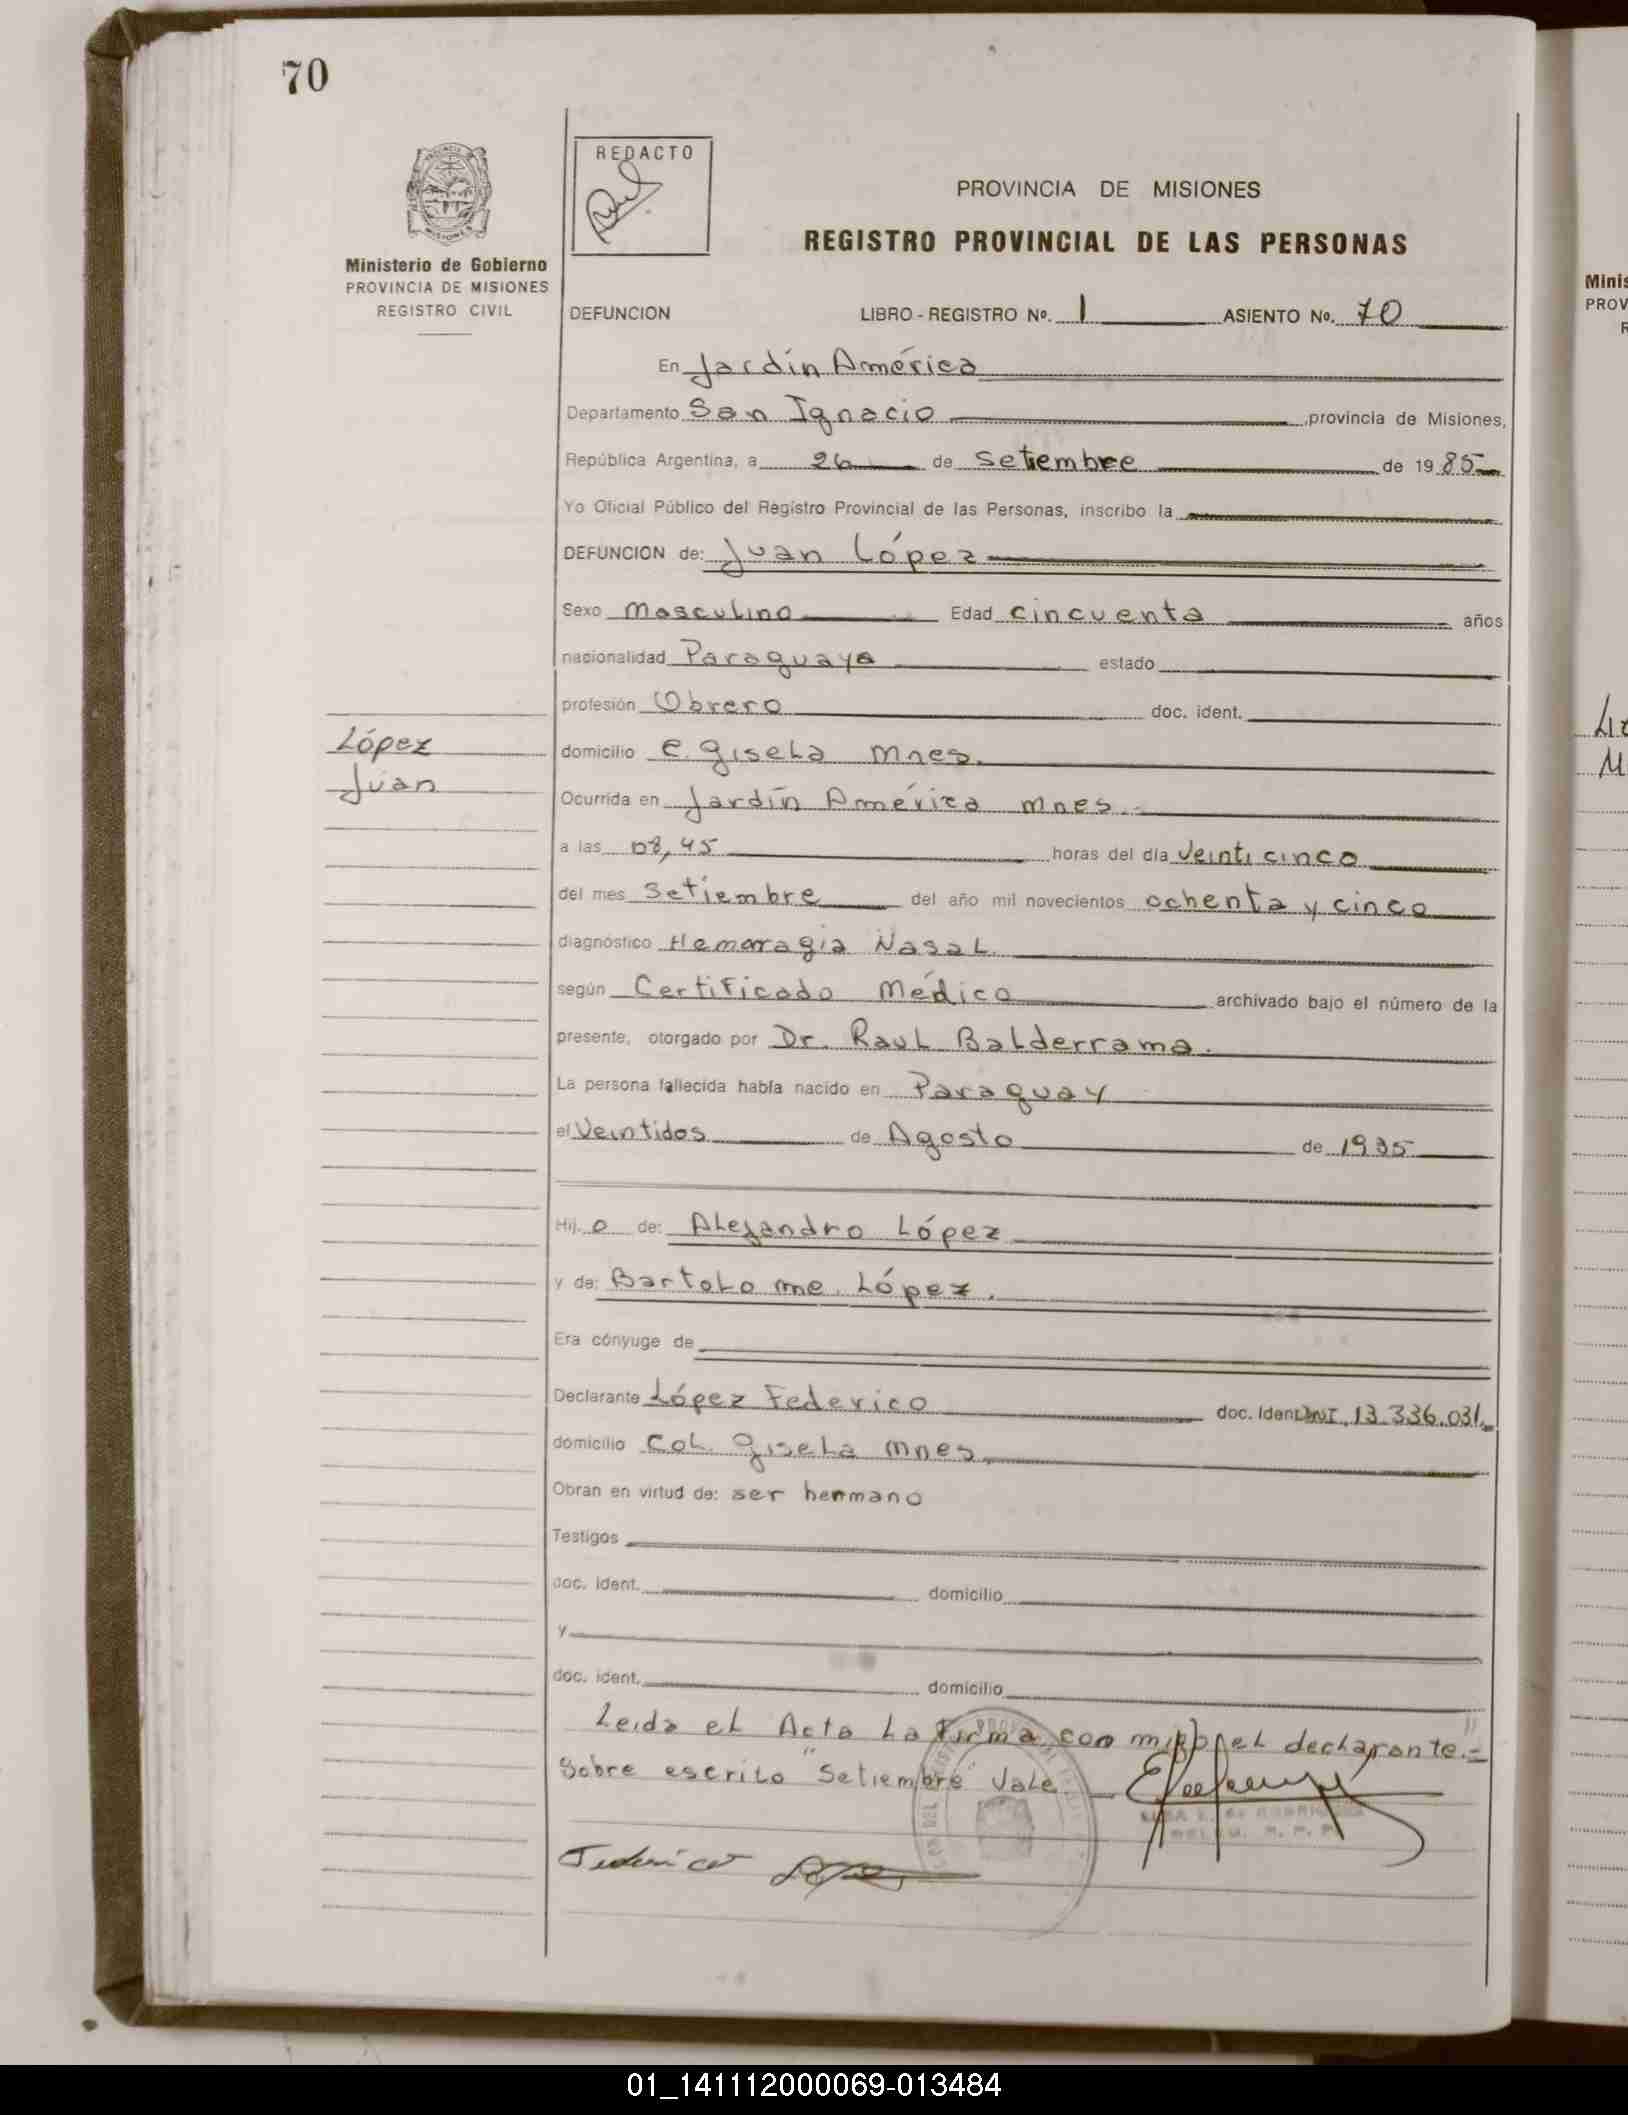 70
REDACTO
PROVINCIA DE MISIONES
REGISTRO PROVINCIAL DE LAS PERSONAS
Ministerio de Gobierno
PROVINCIA DE MISIONES
REGISTRO CIVIL
DEFUNCION LIBRO - REGISTRO Nº. 1 ASIENTO Nº. 70
En Jardín América
Departamento San Ignacio, provincia de Misiones,
República Argentina, a 26 de Setiembre de 1985
Yo Oficial Público del Registro Provincial de las Personas, inscribo la
DEFUNCION de: Juan López
Sexo Masculino Edad cincuenta años
nacionalidad Paraguaya estado
profesión Obrero doc. ident.
López
Juan
domicilio C. Gisela Mnes.
Ocurrida en Jardín América Mnes.
a las 08,45 horas del día Veinticinco
del mes Setiembre del año mil novecientos ochenta y cinco
diagnóstico Hemorragia Nasal
según Certificado Médico archivado bajo el número de la
presente, otorgado por Dr. Raul Balderrama.
La persona fallecida había nacido en Paraguay
el Veintidos de Agosto de 1935
Hij o de: Alejandro López
y de: Bartolome López.
Era cónyuge de
Declarante López Federico doc. Ident. DNI. 13.336.031
domicilio Col. Gisela Mnes.
Obran en virtud de: ser hermano
Testigos
doc. ident. domicilio
y
doc. ident. domicilio
Leida el Acta La Firma con migo el declarante.=
Sobre escrito "Setiembre" Vale
Federico Lopez
MINIS
PROV
01_141112000069-013484